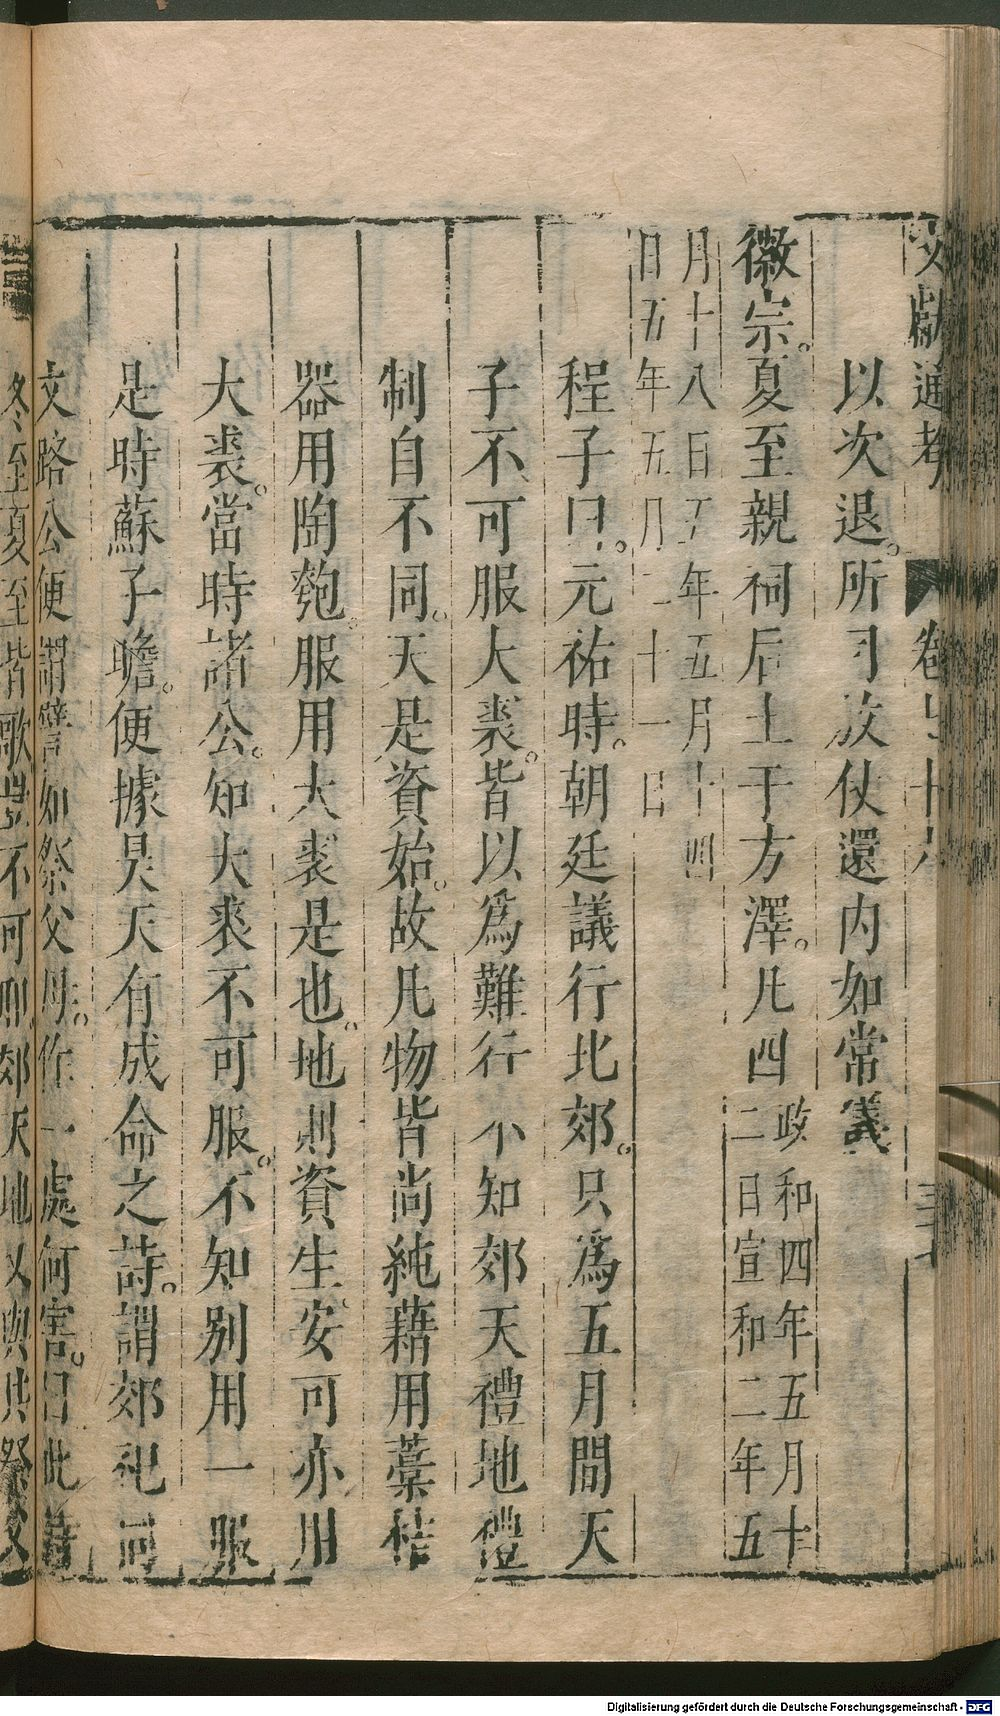 文獻通考 卷七十六
以次退所司放仗還内如常儀
徽宗夏至親祠后土于方澤凡四 政和四年五月十
二日宣和二年五
月十八日五年五月十四
日五年五月二十一日
程子曰元祐時朝廷議行北郊只爲五月間天
子不可服大裘皆以爲難行不知郊天禮地禮
制自不同天是資始故凡物皆尚純藉用藁秸
器用陶匏服用大裘是也地則資生安可亦用
大裘當時諸公知大裘不可服不知别用一服
是時蘇子瞻便據昊天有成命之詩謂郊祀同
文潞公便謂譬如祭父母作一處何害曰此詩
冬至夏至皆歌豈不可耶郊天地以與共祭父
Digitalisierung gefördert durch die Deutsche Forschungsgemeinschaft - DFG